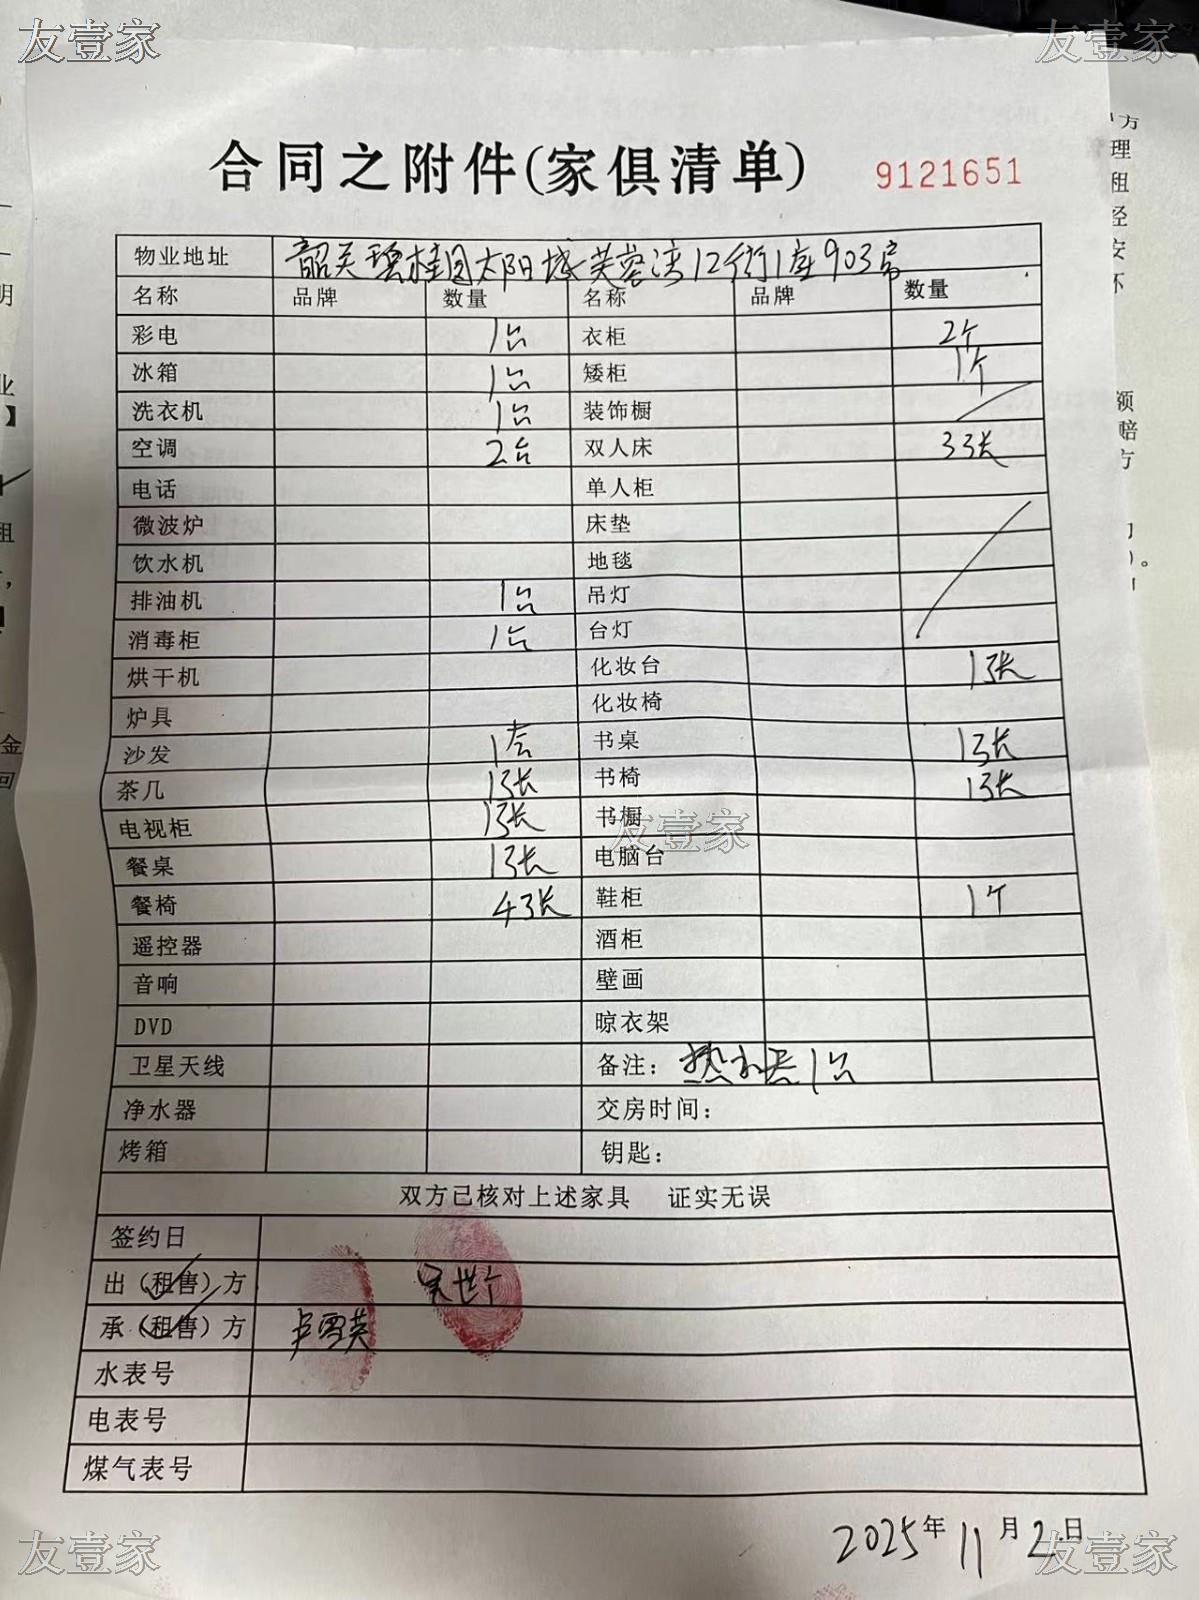 友壹家
友壹家
合同之附件(家俱清单)
9121651
物业地址 韶关碧桂园太阳城芙蓉湾12街1座903房
名称 品牌 数量 名称 品牌 数量
彩电 1台 衣柜 2个
冰箱 1台 矮柜 1个
洗衣机 1台 装饰橱
空调 2台 双人床 3张
电话 单人柜
微波炉 床垫
饮水机 地毯
排油机 1台 吊灯
消毒柜 1台 台灯
烘干机 化妆台 1张
炉具 化妆椅
沙发 1套 书桌 1张
茶几 1张 书椅 1张
电视柜 1张 书橱
友壹家
餐桌 1张 电脑台
餐椅 4张 鞋柜 1个
遥控器 酒柜
音响 壁画
DVD 晾衣架
卫星天线 备注：热水器1台
净水器 交房时间：
烤箱 钥匙：
双方已核对上述家具 证实无误
签约日
出（租售）方
承（租售）方 卢雪英
水表号
电表号
煤气表号
2025年11月2日
友壹家
友壹家
方
理
租
经
安
额
赔
方
明
业
】
租
金
回